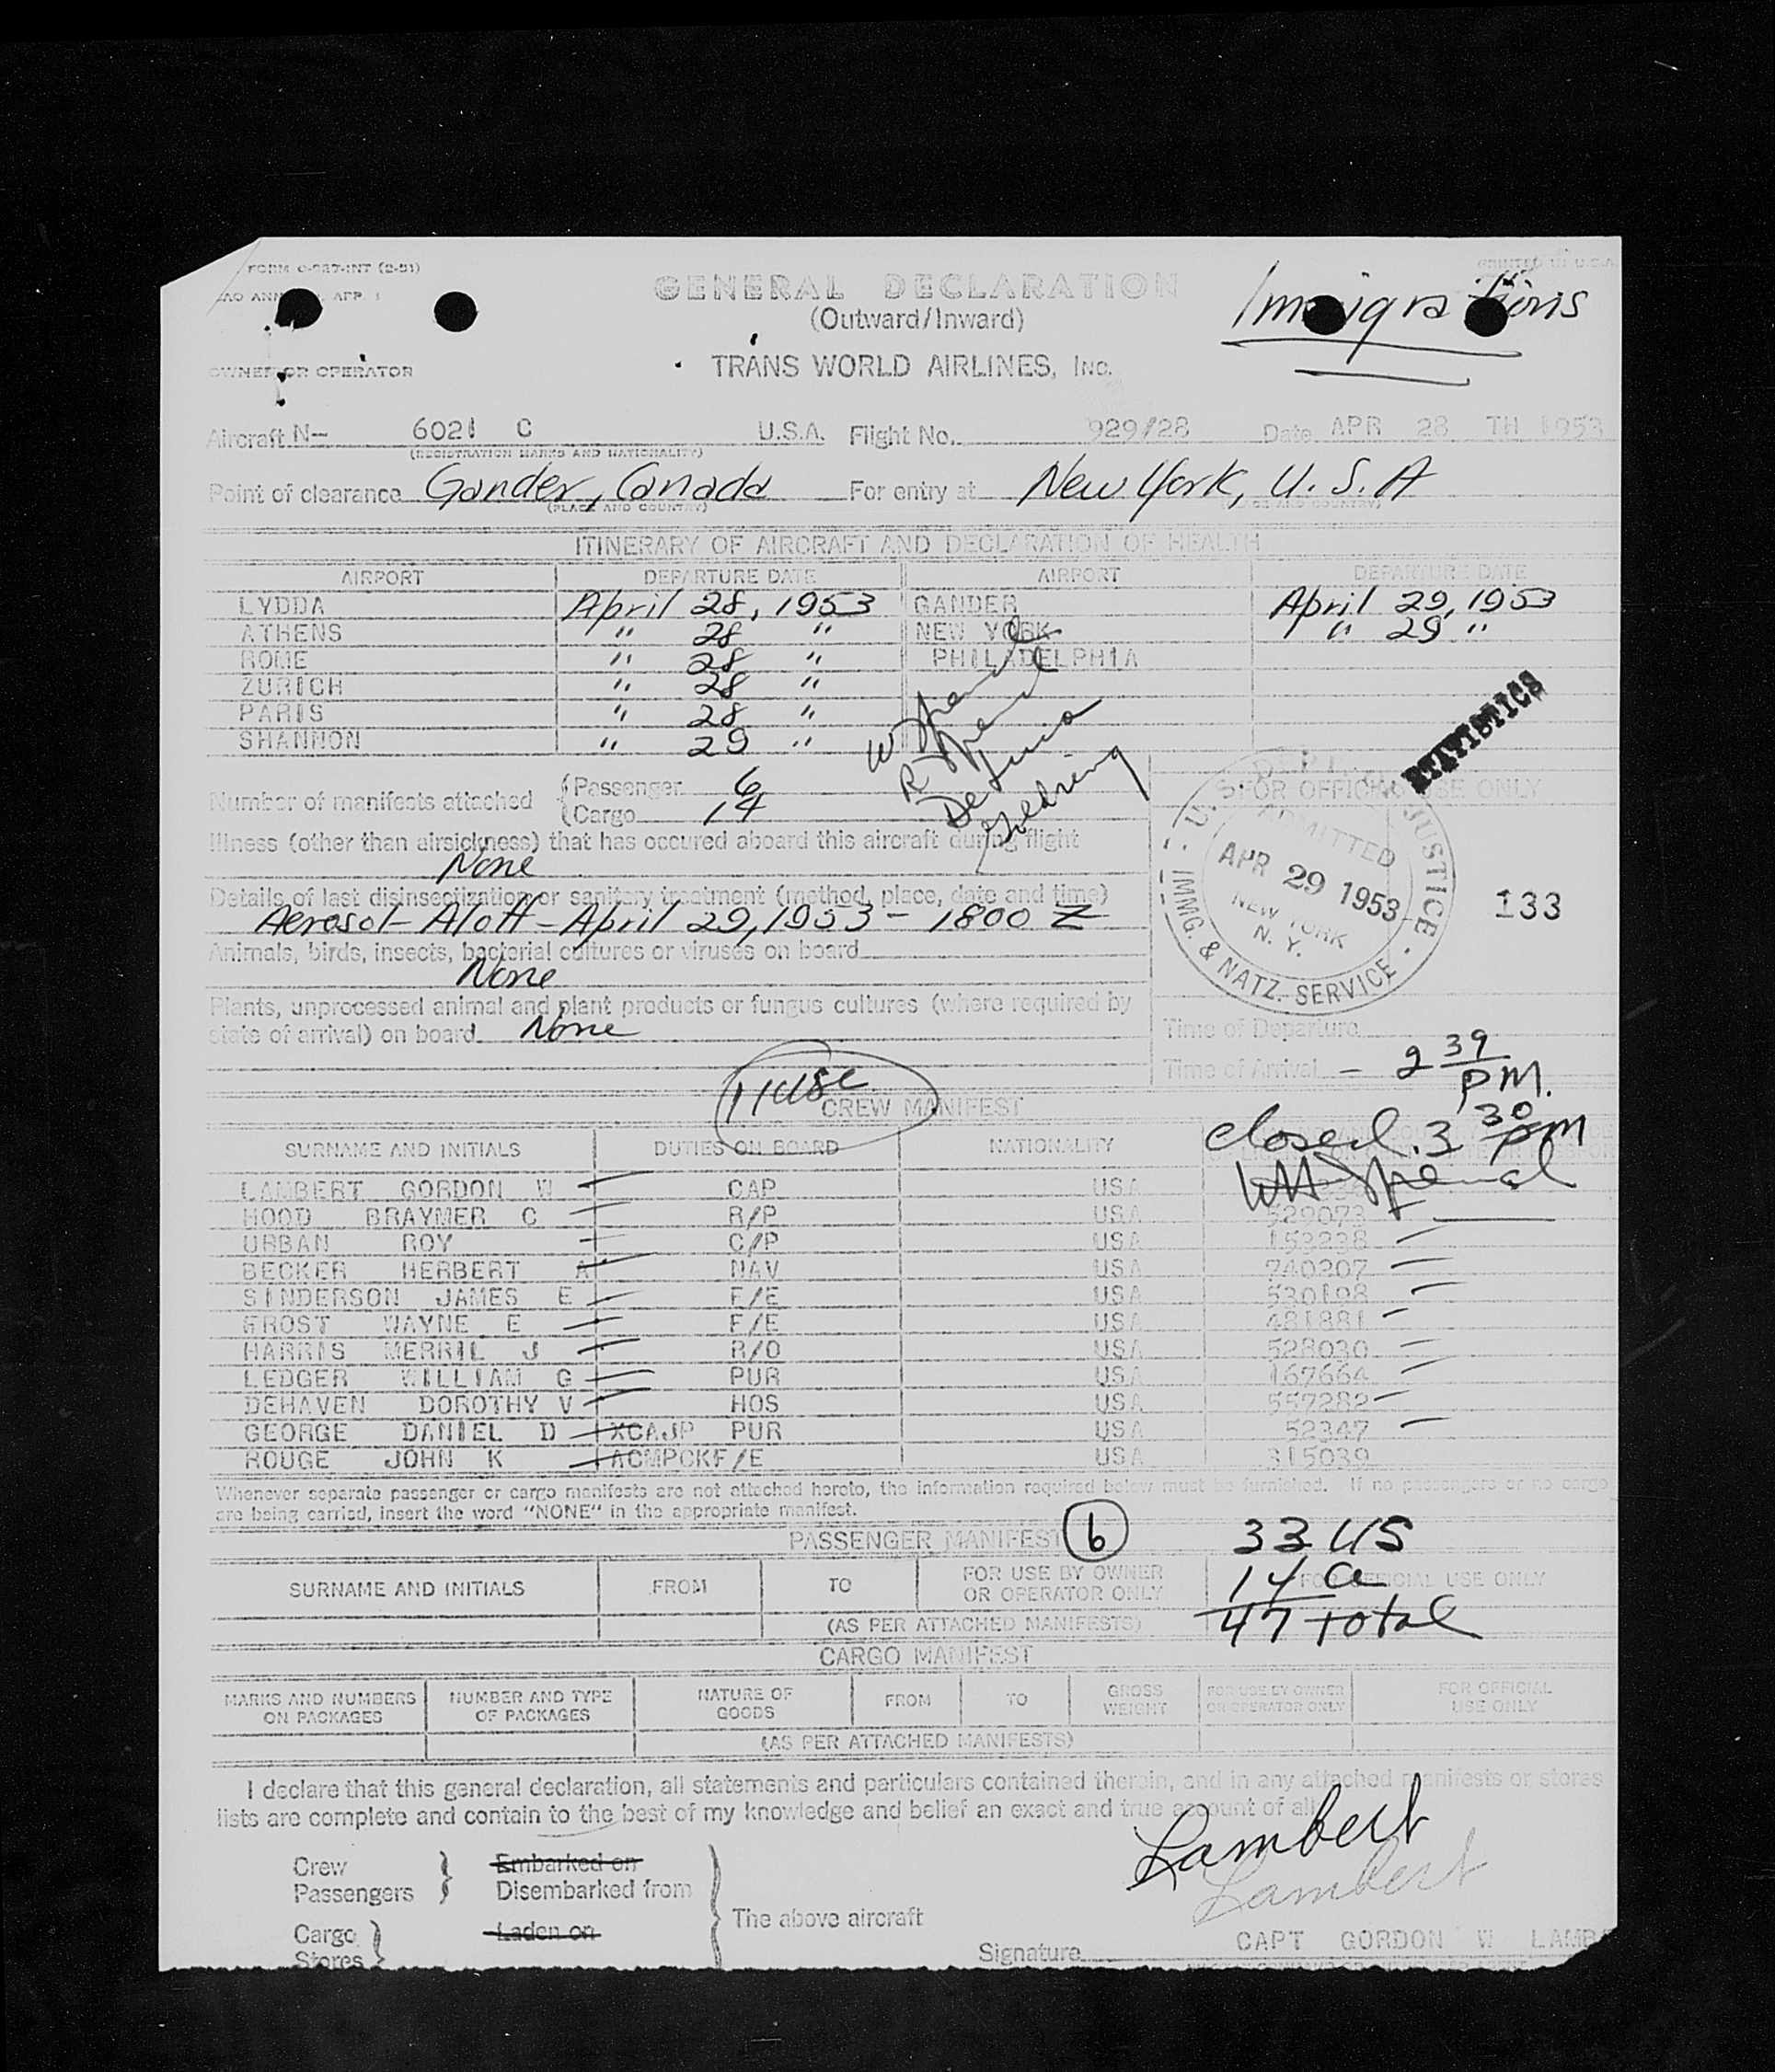 FORM O-927-INT (2-51)
PRINTED IN U.S.A.
GENERAL DECLARATION
(Outward/Inward)
Immigrations
OWNER OR OPERATOR
TRANS WORLD AIRLINES, INC.
Aircraft N- 6021 C U.S.A. Flight No. 929/28 Date APR 28 TH 1953
(REGISTRATION MARKS AND NATIONALITY)
Point of clearance Gander, Canada For entry at New York, U.S.A
(PLACE AND COUNTRY) (PLACE AND COUNTRY)
ITINERARY OF AIRCRAFT AND DECLARATION OF HEALTH
AIRPORT DEPARTURE DATE AIRPORT DEPARTURE DATE
LYDDA April 28, 1953 GANDER April 29, 1953
ATHENS " 28 " NEW YORK " 29 "
ROME " 28 " PHILADELPHIA
ZURICH " 28 "
PARIS " 28 "
SHANNON " 29 "
STATISTICS
Number of manifests attached
Passenger 6
Cargo 14
FOR OFFICIAL USE ONLY
Illness (other than airsickness) that has occured aboard this aircraft during flight
None
Details of last disinsectization or sanitary treatment (method, place, date and time)
Aerosol - Aloft - April 29, 1953 - 1800 Z
Animals, birds, insects, bacterial cultures or viruses on board
None
Plants, unprocessed animal and plant products or fungus cultures (where required by
state of arrival) on board None
U.S. DEPT. JUSTICE
ADMITTED
APR 29 1953
NEW YORK
N. Y.
IMMG. & NATZ. SERVICE
133
Time of Departure
Time of Arrival - 2 39 PM.
CREW MANIFEST
closed. 3 30 pm
SURNAME AND INITIALS DUTIES ON BOARD NATIONALITY
LAMBERT GORDON W CAP USA
HOOD BRAYMER C R/P USA 529073
URBAN ROY C/P USA 153238
BECKER HERBERT A NAV USA 740207
SINDERSON JAMES E F/E USA 530198
FROST WAYNE E F/E USA 481881
HARRIS MERRIL J R/O USA 528030
LEDGER WILLIAM G PUR USA 167664
DEHAVEN DOROTHY V HOS USA 557282
GEORGE DANIEL D XCAJP PUR USA 52347
ROUGE JOHN K ACMPCKF/E USA 315039
Whenever separate passenger or cargo manifests are not attached hereto, the information required below must be furnished. If no passengers or no cargo
are being carried, insert the word "NONE" in the appropriate manifest.
PASSENGER MANIFEST 6
33 US
SURNAME AND INITIALS FROM TO FOR USE BY OWNER OR OPERATOR ONLY FOR OFFICIAL USE ONLY
14 a
(AS PER ATTACHED MANIFESTS)
47 total
CARGO MANIFEST
MARKS AND NUMBERS ON PACKAGES NUMBER AND TYPE OF PACKAGES NATURE OF GOODS FROM TO GROSS WEIGHT FOR USE BY OWNER OR OPERATOR ONLY FOR OFFICIAL USE ONLY
(AS PER ATTACHED MANIFESTS)
I declare that this general declaration, all statements and particulars contained therein, and in any attached manifests or stores
lists are complete and contain to the best of my knowledge and belief an exact and true account of all
Lambert
Lambert
Crew Embarked on
Passengers Disembarked from
The above aircraft
Cargo Laden on
Stores
Signature CAPT GORDON W LAMB